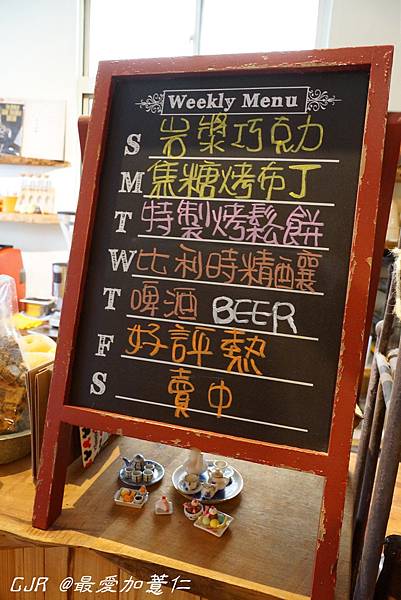 Weekly Menu
S 岩漿巧克力
M 焦糖烤布丁
T 特製烤鬆餅
W 比利時精釀
T 啤酒 BEER
F 好評熱
S 賣中
CJR @最愛加薏仁